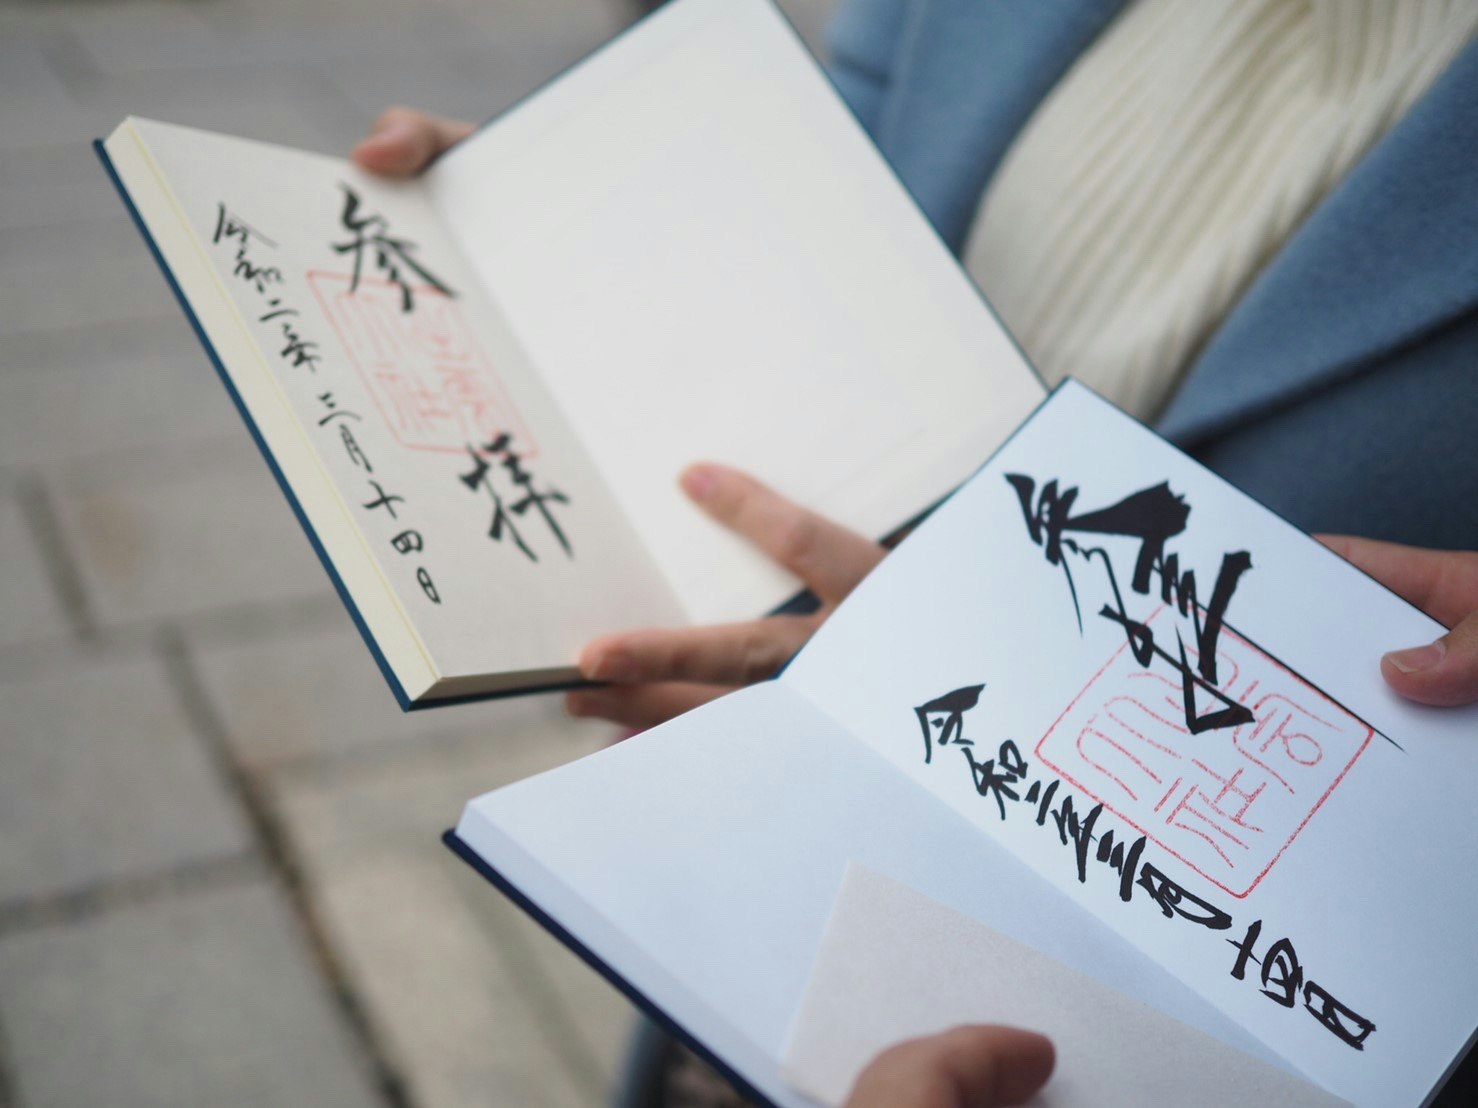 参拝
令和二年 三月十四日
参拝
令和二年三月十四日